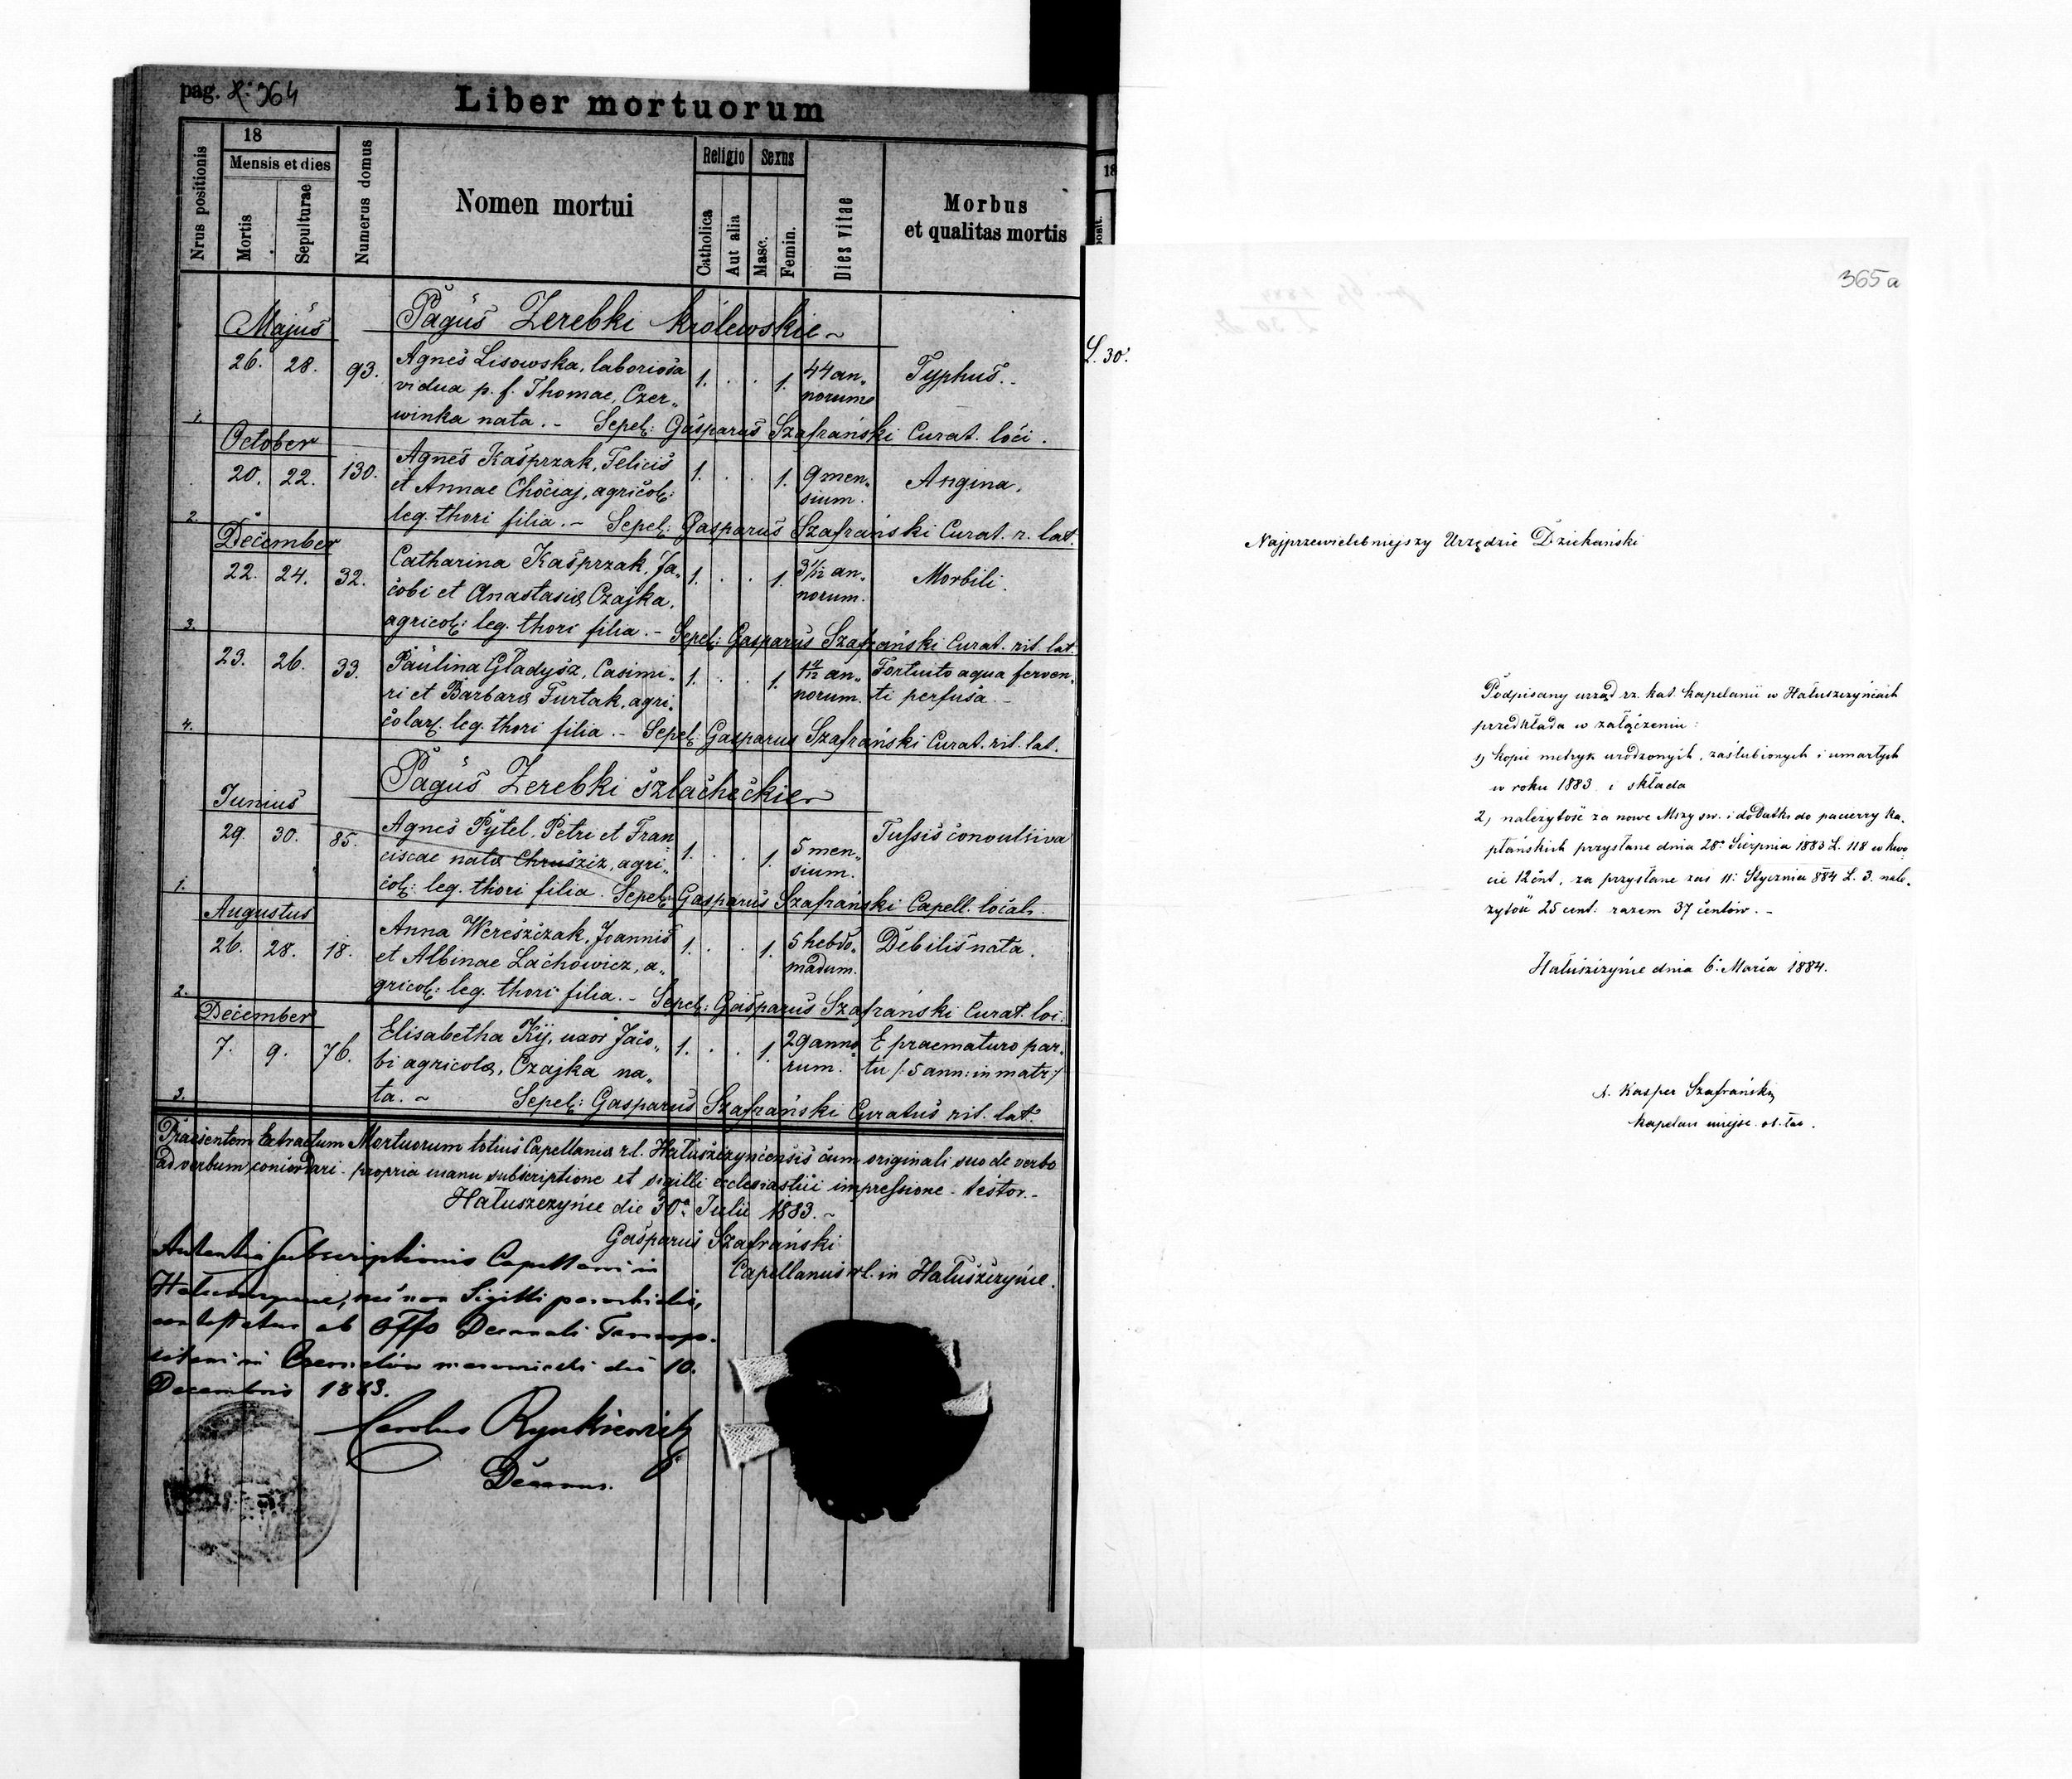 pag. 364
Liber mortuorum
Nrus positionis
18
Mensis et dies
Mortis
Sepulturae
Numerus domus
Nomen mortui
Religio
Catholica
Aut alia
Sexus
Masc.
Femin.
Dies vitae
Morbus
et qualitas mortis
Majus
Pagus Zerebki królewskie~
26. 28. 93. Agnes Lisowska, laboriosa 1. . . 1. 44 an„ Typhus.-
vidua p. f. Thomae, Czer„ norum
1. winka nata. - Sepel: Gasparus Szafrański Curat. loci.
October
20. 22. 130. Agnes Kasprzak, Felicis 1. . . 1. 9 men„ Angina.
et Annae Chociaj, agricol: sium.
2. leg. thori filia. - Sepel: Gasparus Szafrański Curat. r. lat.
December
22. 24. 32. Catharina Kasprzak, Ja„ 1. . . 1. 3 1/12 an„ Morbili.
cobi et Anastasiæ Czajka, norum.
3. agricol: leg. thori filia. - Sepel: Gasparus Szafrański Curat. rit. lat.
23. 26. 33. Paulina Gładysz, Casimi„ 1. . . 1. an„ Fortuito aqua ferven„
ri et Barbaræ Furtak, agri„ norum. ti perfusa.-
4. colar. leg. thori filia. - Sepel: Gasparus Szafrański Curat. rit. lat.
Pagus Zerebki szlacheckie
Junius
29. 30. 85. Agnes Pytel, Petri et Fran 1. . . 1. 5 men„ Tussis convulsiva
ciscae natæ Chruściz, agri„ sium.
1. col: leg. thori filia. Sepel: Gasparus Szafrański Capell. local.
Augustus
26. 28. 18. Anna Wereszczak, Joannis 1. . . 1. 5 hebdo„ Debilis nata.
et Albinae Lachowicz, a„ madum.
2. gricol: leg. thori filia. - Sepel: Gasparus Szafrański Curat. loci.
December
7. 9. 76. Elisabetha Kij, uxor Jaco„ 1. . . 1. 29 anno E praematuro par„
bi agricolæ, Czajka na„ rum. tu /: 5 ann: in matr:/
3. ta. ~ Sepel: Gasparus Szafrański Curatus rit. lat.
Praesentem Extractum Mortuorum totius Capellaniæ r.l. Hałuszczyniensis cum originali suo de verbo
ad verbum concordari - propria manu subscriptione et sigilli ecclesiastici impressione - testor.-
Hałuszczyńce die 30a Julii 1883.~
Gasparus Szafrański
Capellanus r.l. in Hałuszczyńce.
subscriptionis Capellani in
Sigilli parochialis,
ab Offo Decanali Tarnopo-
10.
Decembris 1883.
Carolus Rynkiewicz
Decanus.
365a
L. 30.
Najprzewielebniejszy Urzędzie Dziekański
Podpisany urząd rz. kat. kapelanii w Hałuszczyńcach
przedkłada w załączeniu:
1) kopie metryk urodzonych, zaślubionych i umarłych
w roku 1883. i składa
2) należytość za nowe Mszy św. i dodatki do pacierzy ka„
płańskich przysłane dnia 28. Sierpnia 1883 L. 118 w kwo„
cie 12 cnt, za przysłane zaś 11. Stycznia 884 L. 3. nale„
żytość 25 cent. razem 37 centów. -
Hałuszczyńce dnia 6. Marca 1884.
X. Kasper Szafrański
kapelan miejsc. ob. łac.